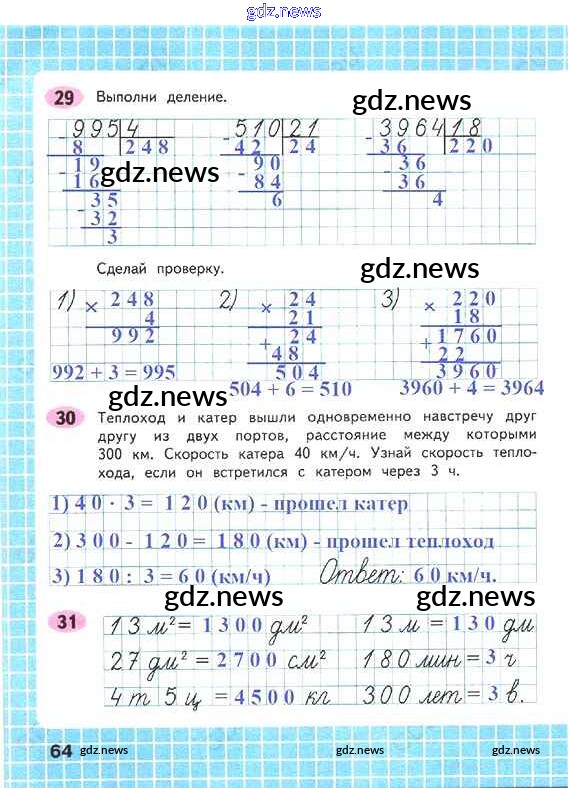 gdz.news
29 Выполни деление.
gdz.news
995 4 510 21 3964 18
- 8 248 - 42 24 - 36 220
- 19 - 90 - 36
16 84 36
gdz.news
- 35 6 4
32
3
Сделай проверку.
gdz.news
1) × 248 2) × 24 3) × 220
4 21 18
992 + 24 + 1760
48 22
992 + 3 = 995 504 3960
504 + 6 = 510 3960 + 4 = 3964
gdz.news
30 Теплоход и катер вышли одновременно навстречу друг
другу из двух портов, расстояние между которыми
300 км. Скорость катера 40 км/ч. Узнай скорость тепло-
хода, если он встретился с катером через 3 ч.
gdz.news
1) 40 · 3 = 120 (км) - прошел катер
2) 300 - 120 = 180 (км) - прошел теплоход
3) 180 : 3 = 60 (км/ч) Ответ: 60 км/ч.
gdz.news gdz.news
31 13 м² = 1300 дм² 13 м = 130 дм
27 дм² = 2700 см² 180 мин = 3 ч
4 т 5 ц = 4500 кг 300 лет = 3 в.
64 gdz.news gdz.news gdz.news